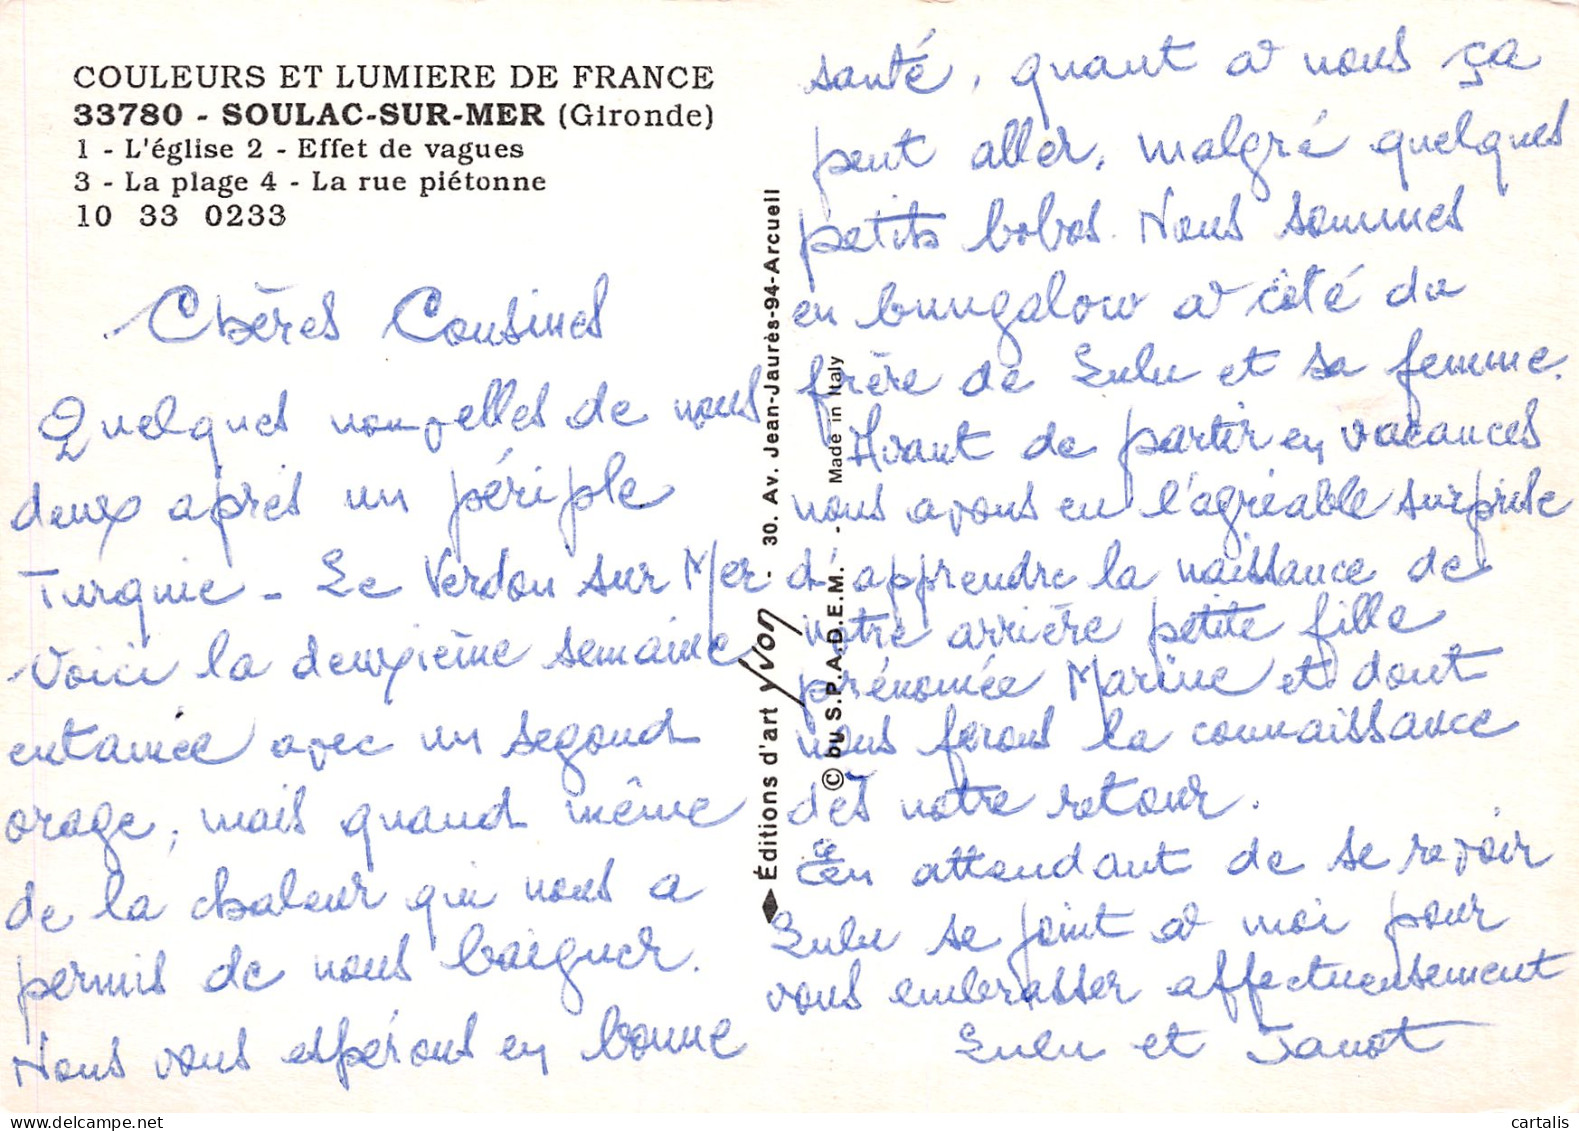 COULEURS ET LUMIERE DE FRANCE
33780 - SOULAC-SUR-MER (Gironde)
1 - L'église 2 - Effet de vagues
3 - La plage 4 - La rue piétonne
10 33 0233
Chères Cousines
Quelques nouvelles de nous
deux après un périple
Turquie - Le Verdon sur Mer.
Voici la deuxième semaine
entamée avec un segond
orage, mais quand même
de la chaleur qui nous a
permis de nous baigner.
Nous vous espérons en bonne
Éditions d'art yvon 30. Av. Jean-Jaurès-94-Arcueil
© by S.P.A.D.E.M. - Made in Italy
santé, quant à nous ça
peut aller, malgré quelques
petits bobos. Nous sommes
en bungalow à côté du
frère de Lulu et sa femme.
Avant de partir en vacances
nous avons eu l'agréable surprise
d'apprendre la naissance de
notre arrière petite fille
prénomée Marine et dont
nous ferons la connaissance
dès notre retour.
En attendant de se revoir
Lulu se joint à moi pour
vous embrasser affectueusement
Lulu et Janot
cartalis